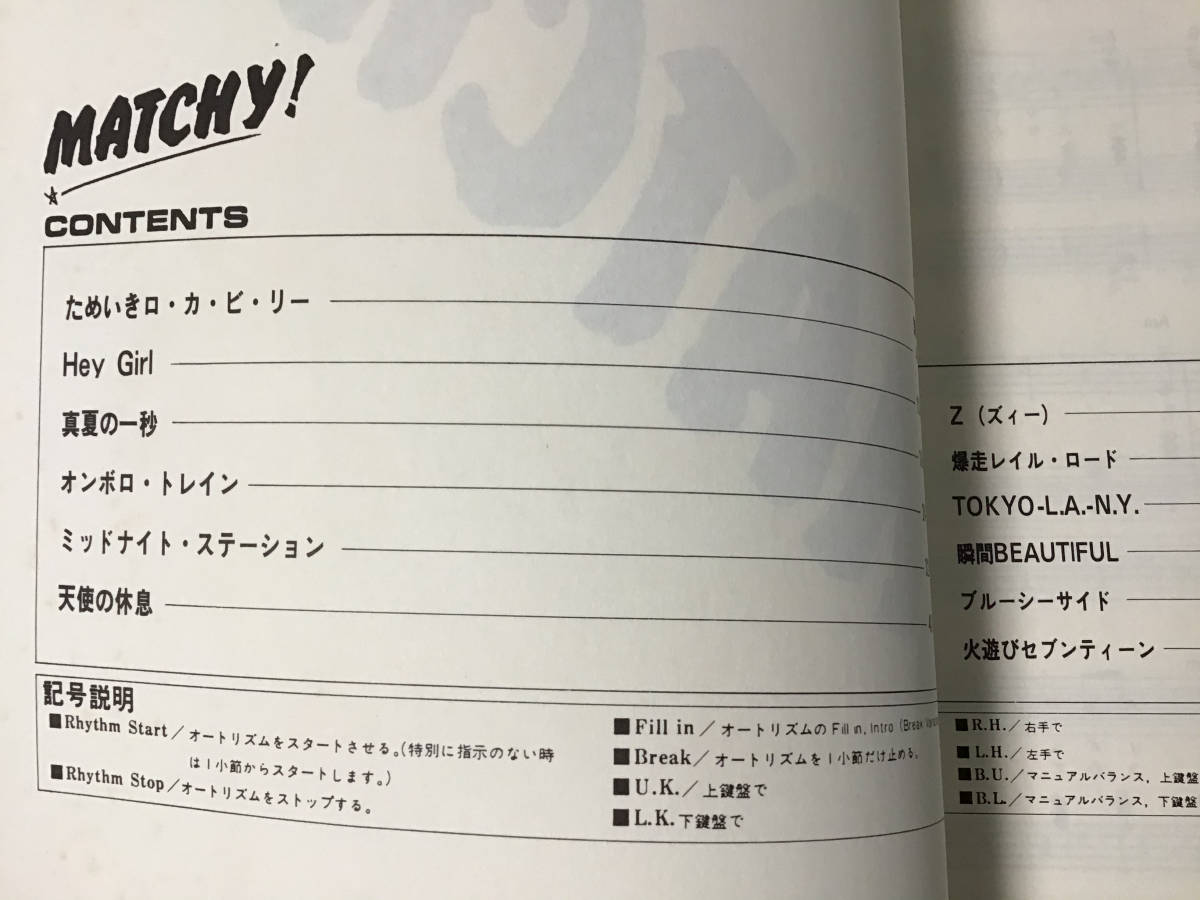 MATCHY!
CONTENTS
ためいきロ・カ・ビ・リー
Hey Girl
真夏の一秒
オンボロ・トレイン
ミッドナイト・ステーション
天使の休息
Z（ズィー）
爆走レイル・ロード
TOKYO-L.A.-N.Y.
瞬間BEAUTIFUL
ブルーシーサイド
火遊びセブンティーン
記号説明
■Rhythm Start／オートリズムをスタートさせる。（特別に指示のない時
は１小節からスタートします。）
■Rhythm Stop／オートリズムをストップする。
■Fill in／オートリズムのFill in, Intro（Break
■Break／オートリズムを１小節だけ止める。
■U.K.／上鍵盤で
■L.K.下鍵盤で
■R.H.／右手で
■L.H.／左手で
■B.U.／マニュアルバランス，上鍵盤
■B.L.／マニュアルバランス，下鍵盤